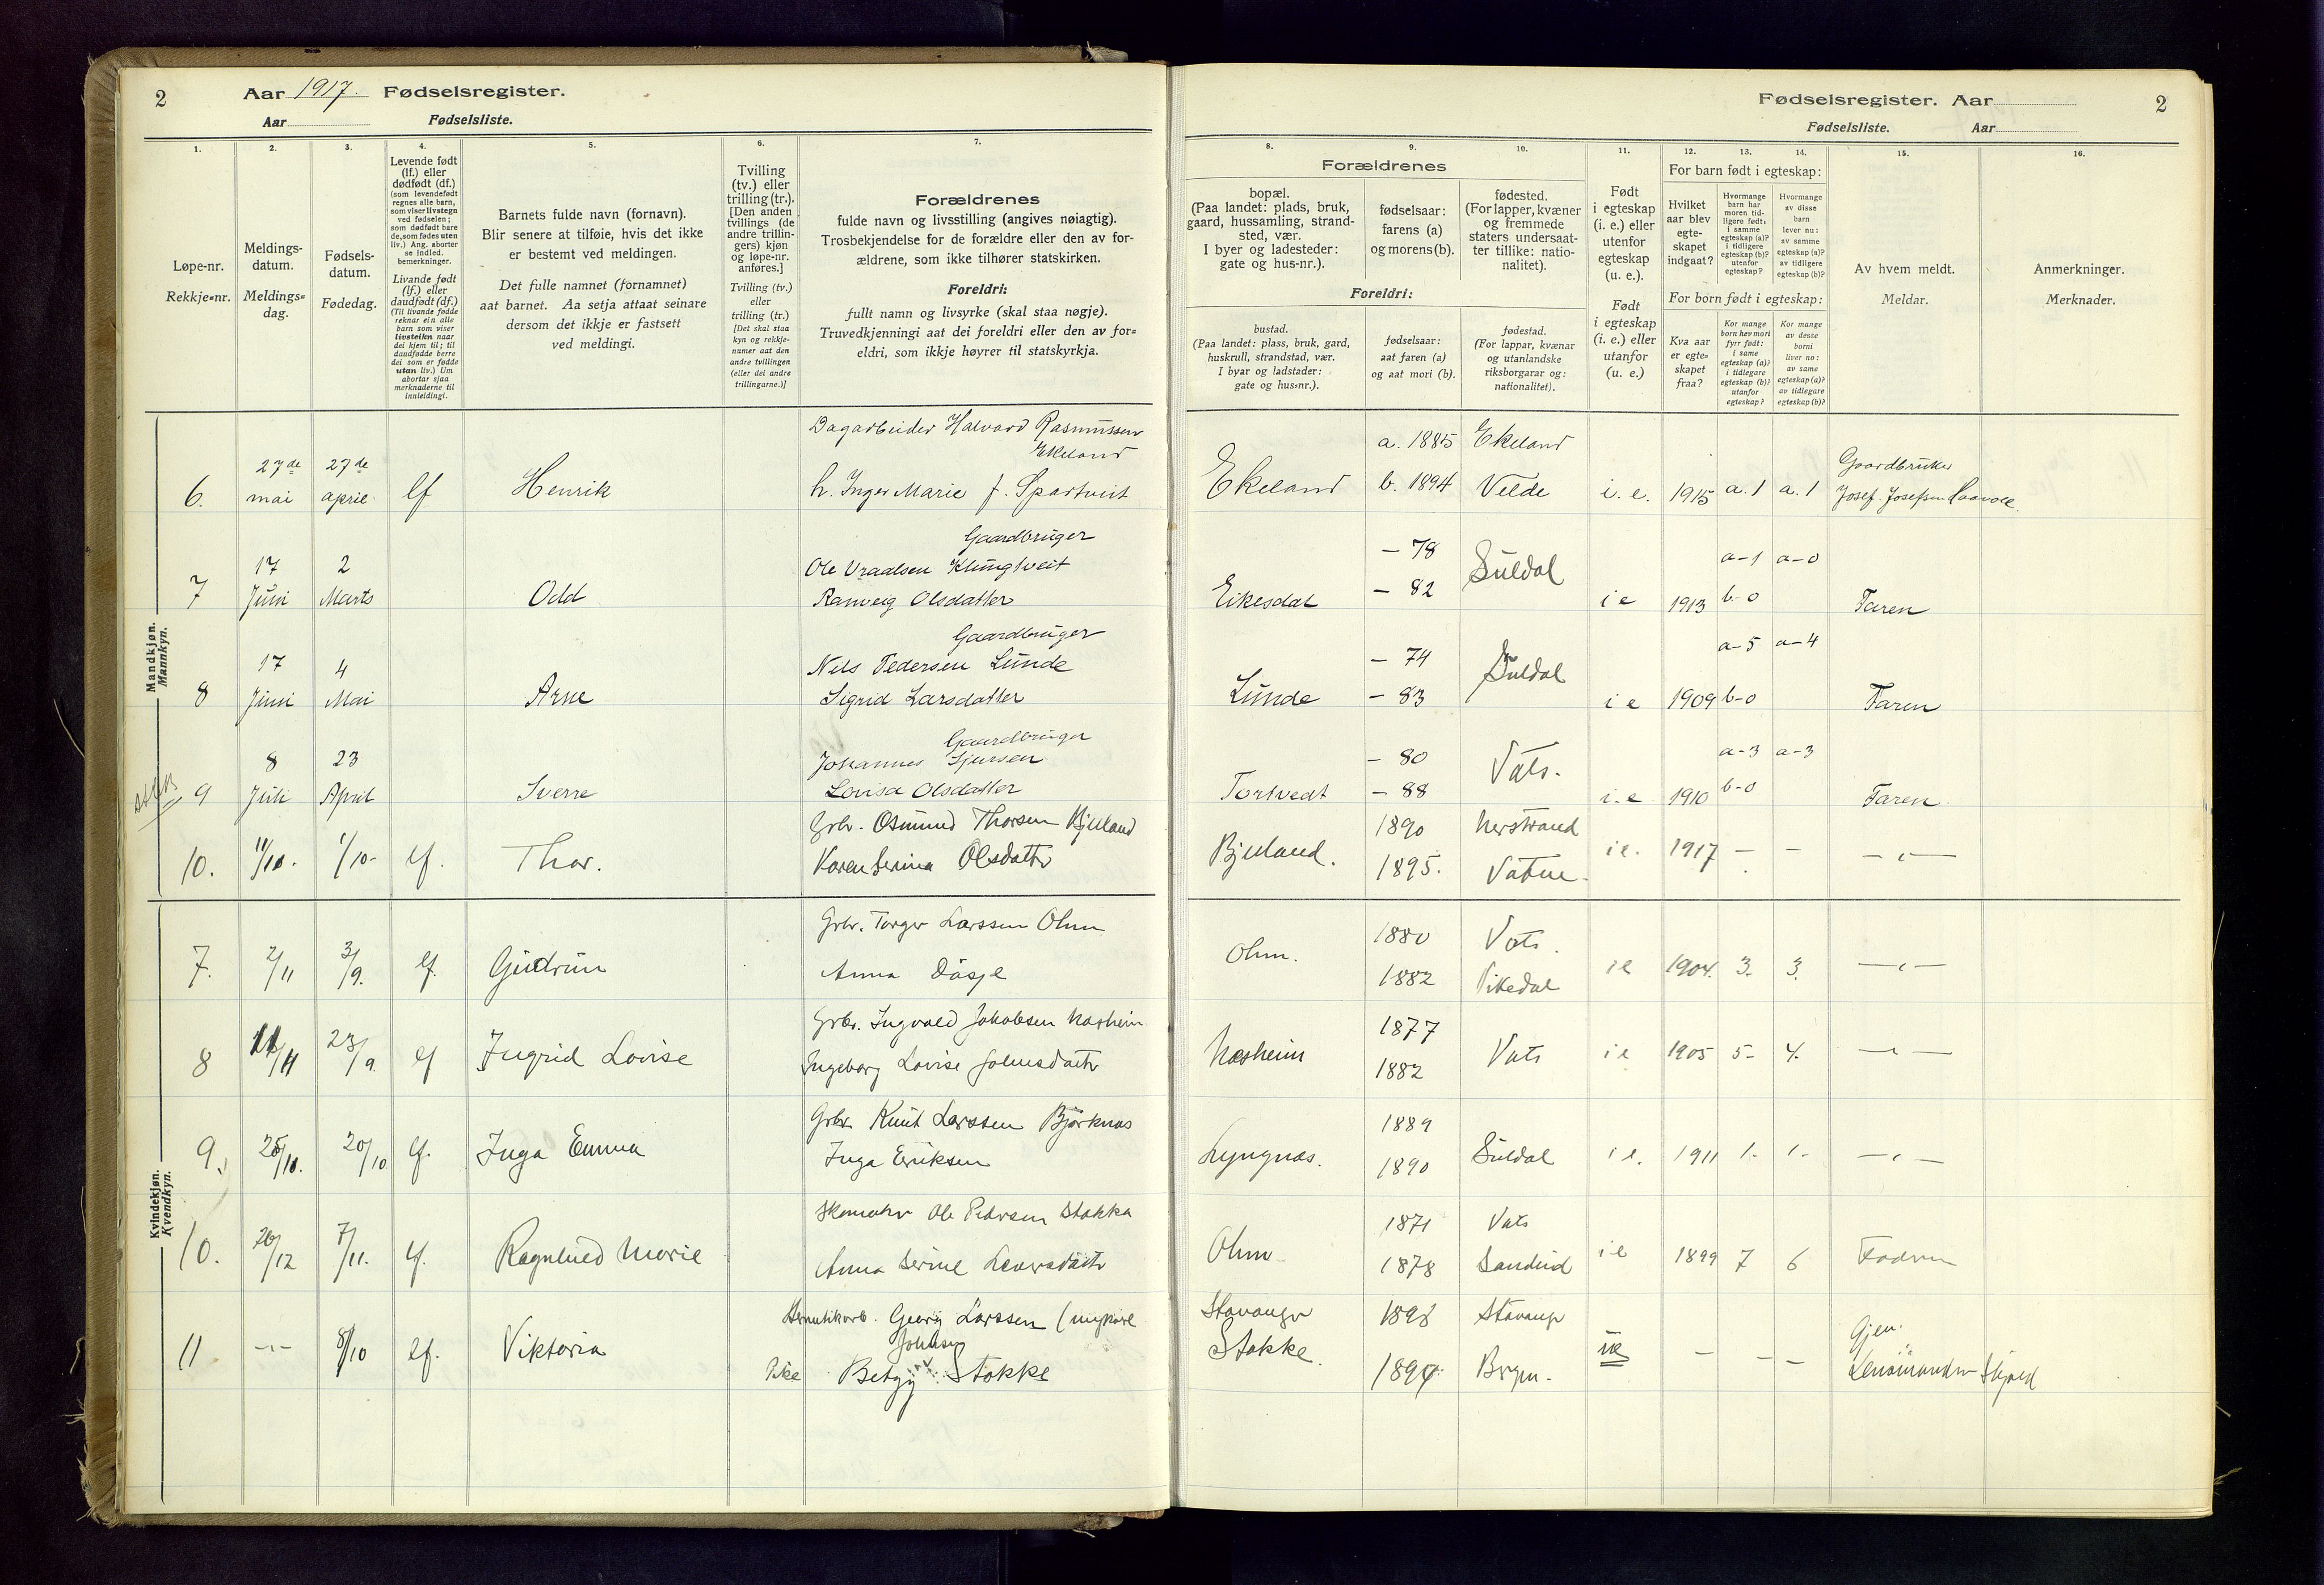 2
Aar 1917. Fødselsregister.
Aar
Fødselsliste.
1.
2.
3.
4.
5.
6.
7.
Løpe-nr.
Rekkje=nr.
Meldings-
datum.
Meldings=
dag.
Fødsels-
datum.
Fødedag.
Levende født
(lf.) eller
dødfødt (df.)
(som levendefødt
regnes alle barn,
som viser livstegn
ved fødselen;
som dødfødt bare
de, som fødes uten
liv.) Ang. aborter
se indled.
bemerkninger.
Livande født
(lf.) eller
daudfødt (df.)
(Til livande fødde
reknar ein alle
barn som viser
livsteikn naar
dei kjem til; til
daudfødde berre
dei som er fødde
utan liv.) Um
abortar sjaa
merknaderne til
innleidingi.
Barnets fulde navn (fornavn).
Blir senere at tilføie, hvis det ikke
er bestemt ved meldingen.
Det fulle namnet (fornamnet)
aat barnet. Aa setja attaat seinare
dersom det ikkje er fastsett
ved meldingi.
Tvilling
(tv.) eller
trilling (tr.).
[Den anden
tvillings (de
andre trillin-
gers) kjøn
og løpe-nr.
anføres.]
Tvilling (tv.)
eller
trilling (tr.)
[Det skal staa
kyn og rekkje-
numer aat den
andre tvillingen
(eller dei andre
trillingarne.)]
Forældrenes
fulde navn og livsstilling (angives nøiagtig).
Trosbekjendelse for de forældre eller den av for-
ældrene, som ikke tilhører statskirken.
Foreldri:
fullt namn og livsyrke (skal staa nøgje).
Truvedkjenningi aat dei foreldri eller den av for=
eldri, som ikkje høyrer til statskyrkja.
Mandkjøn.
Mannkyn.
6. 27de mai 27de april lf Henrik
Dagarbeider Halvard Rasmussen
Ekeland
h. Inger Marie f. Spartveit
7 17 Juni 2 Marts Odd
Gaardbruger
Ole Vraalsen Klungtveit
Ranveig Olsdatter
8 17 Juni 4 Mai Arne
Gaardbruger
Nils Pedersen Lunde
Sigrid Larsdatter
9 8 Juli 23 April Sverre
Gaardbruger
Johannes Sjursen
Lovisa Olsdatter
10. 11/10. 1/10- lf. Thor.
Grbr. Osmund Thorsen Bjelland
Karen Serina Olsdattr
Kvindekjøn.
Kvendkyn.
7. 2/11 3/9. lf. Gudrun
Grbr. Torger Larssen Ohm
Anna
8 11/11 23/9. lf Ingrid Lovise
Grbr. Ingvald Jakobsen Næsheim
Ingeborg Lovise Johnsdattr
9. 25/10. 20/10 lf. Inga Emma
Grbr. Knut Larssen Bjørknæs
Inga Eriksen
10. 20/12 7/11. lf. Ragnhild Marie
Skomakr Ole Pedersen Stakka
Anna Serine
11 -"- 8/10 lf. Viktoria
Hermetikarb. Georg Larssen (ungkarl
Pike Betzy Stokke
Fødselsregister. Aar
2
Fødselsliste.
Aar
8.
9.
10.
11.
12.
13.
14.
15.
16.
Forældrenes
bopæl.
(Paa landet: plads, bruk,
gaard, hussamling, strand-
sted, vær.
I byer og ladesteder:
gate og hus-nr.).
fødselsaar:
farens (a)
og morens (b).
fødested.
(For lapper, kvæner
og fremmede
staters undersaat-
ter tillike: natio-
nalitet).
Foreldri:
bustad.
(Paa landet: plass, bruk, gard,
huskrull, strandstad, vær.
I byar og ladstader:
gate og hus=nr.).
fødselsaar:
aat faren (a)
og aat mori (b).
fødestad.
(For lappar, kvænar
og utanlandske
riksborgarar og:
nationalitet).
Født
i egteskap
(i. e.) eller
utenfor
egteskap
(u. e.).
Født
i egteskap
(i. e.) eller
utanfor
(u. e.)
For barn født i egteskap:
Hvilket
aar blev
egte-
skapet
indgaat?
Hvormange
barn har
moren tid-
ligere født:
i samme
egteskap (a)?
i tidligere
egteskap (b)?
utenfor
egteskap?
Hvormange
av disse
barn
lever nu:
av samme
egteskap (a)?
av tidligere
egteskap (b)?
For born født i egteskap:
Kva aar
er egte=
skapet
fraa?
Kor mange
born hev mori
fyrr født:
i same
egteskap (a)?
i tidlegare
egteskap (b)?
utanfor
egteskap?
Kor mange
av desse
borni
liver no:
av same
egteskap (a)?
av tidlegare
egteskap (b)?
Av hvem meldt.
Meldar.
Anmerkninger.
Merknader.
Ekeland a. 1885 Ekeland
b. 1894 Velde i. e. 1915 a. 1 a. 1
Gaardbruker
Josef Josefsen
Eikesdal - 78 - 82 Suldal i e 1913 a-1 b-0 a-0 Faren
Lunde - 74 - 83 Suldal i e 1909 a-5 b-0 a-4 Faren
Tortvedt - 80 - 88 Vats. i. e 1910 a-3 b-0 a-3 Faren.
Bjelland. 1890 Nerstrand
1895. Vatne. i e. 1917 - - -"-
Ohm. 1880 Vats.
1882 Vikedal i e 1904. 3. 3. -"-
Næsheim 1877
1882 Vats i e 1905 5- 4. -"-
Lyngnæs. 1889
1890 Suldal i e. 1911 1. 1. -"-
Ohm 1871 Vats
1878 Sandeid i e 1899 7 6 Fadren
Stavanger 1898 Stavanger
Stakke. 1894. Bergen. ue - - -
Gjen.
Lensmanden Skjold